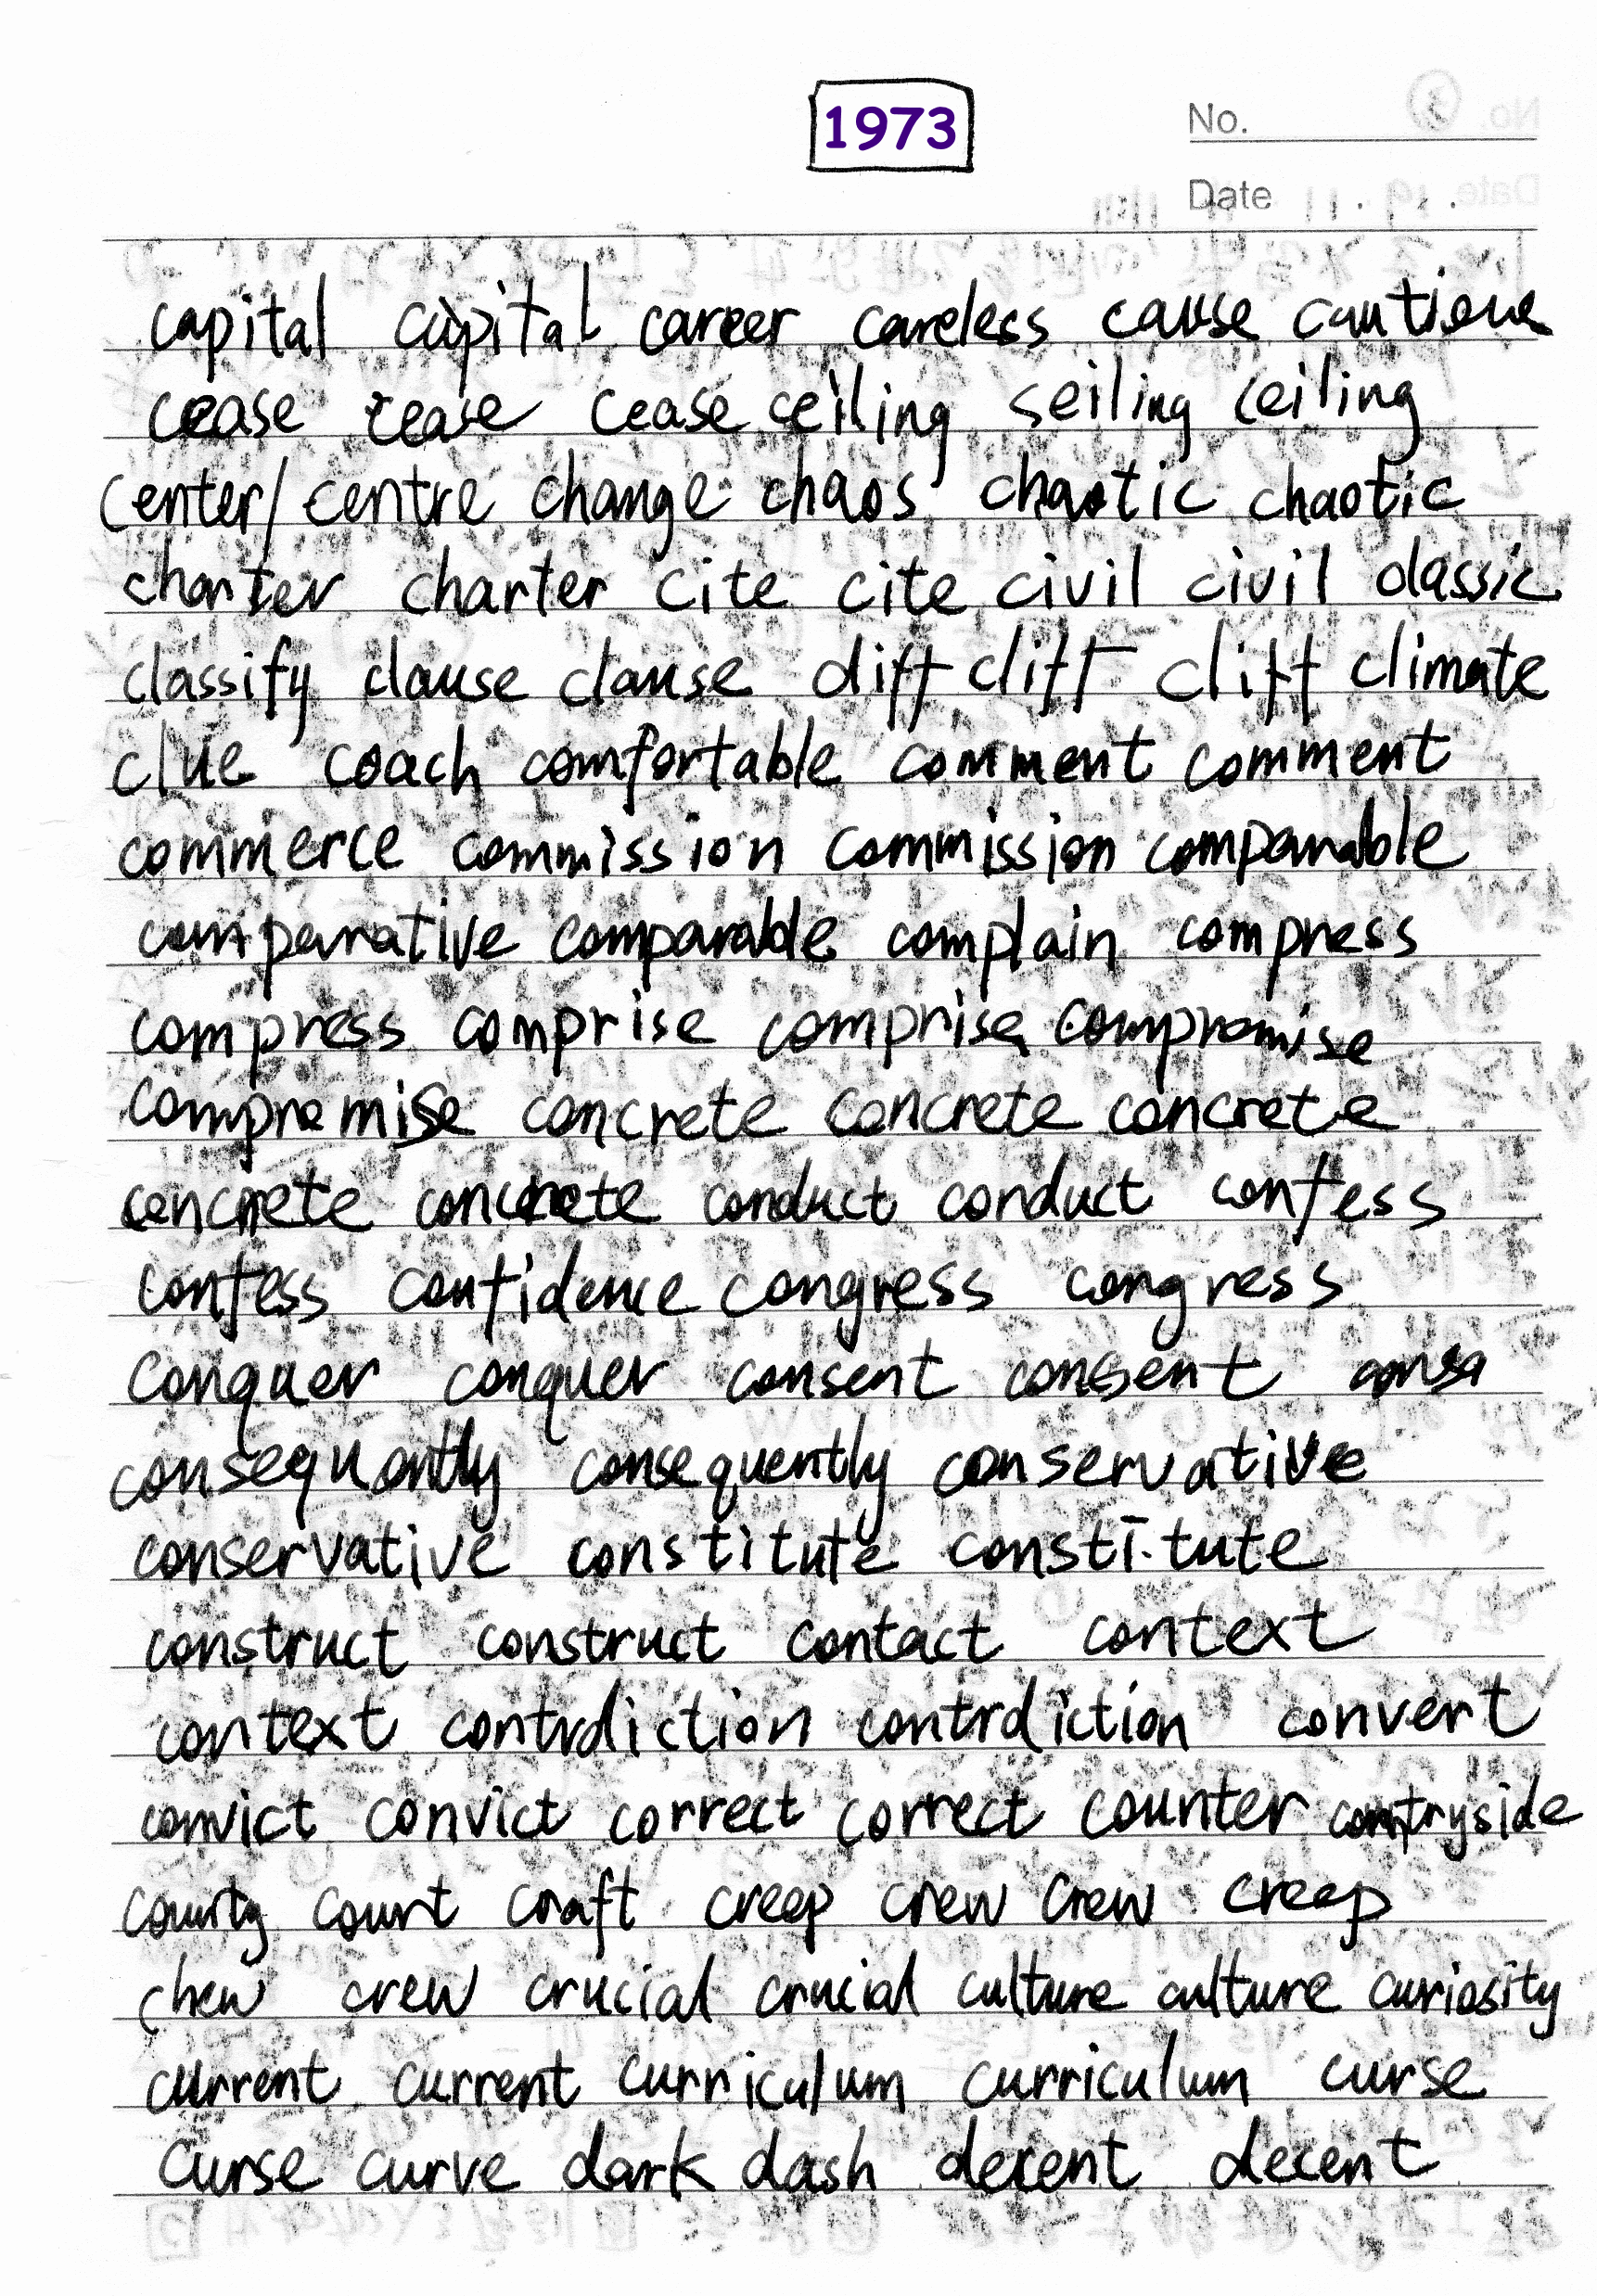 1973
No.
Date
capital capital career careless cause cautious
cease cease cease ceiling seiling ceiling
center/centre change chaos chaotic chaotic
charter charter cite cite civil civil classic
classify clause clause cliff cliff cliff climate
clue coach comfortable comment comment
commerce commission commission comparable
comparative comparable complain compress
compress comprise comprise compromise
compromise concrete concrete concrete
concrete concrete conduct conduct confess
confess confidence congress congress
conquer conquer consent consent
consequently consequently conservative
conservative constitute constitute
construct construct contact context
context contrdiction contrdiction convert
convict convict correct correct counter countryside
county court craft creep crew crew creep
chew crew crucial crucial culture culture curiosity
current current curriculum curriculum curse
curse curve dark dash decent decent